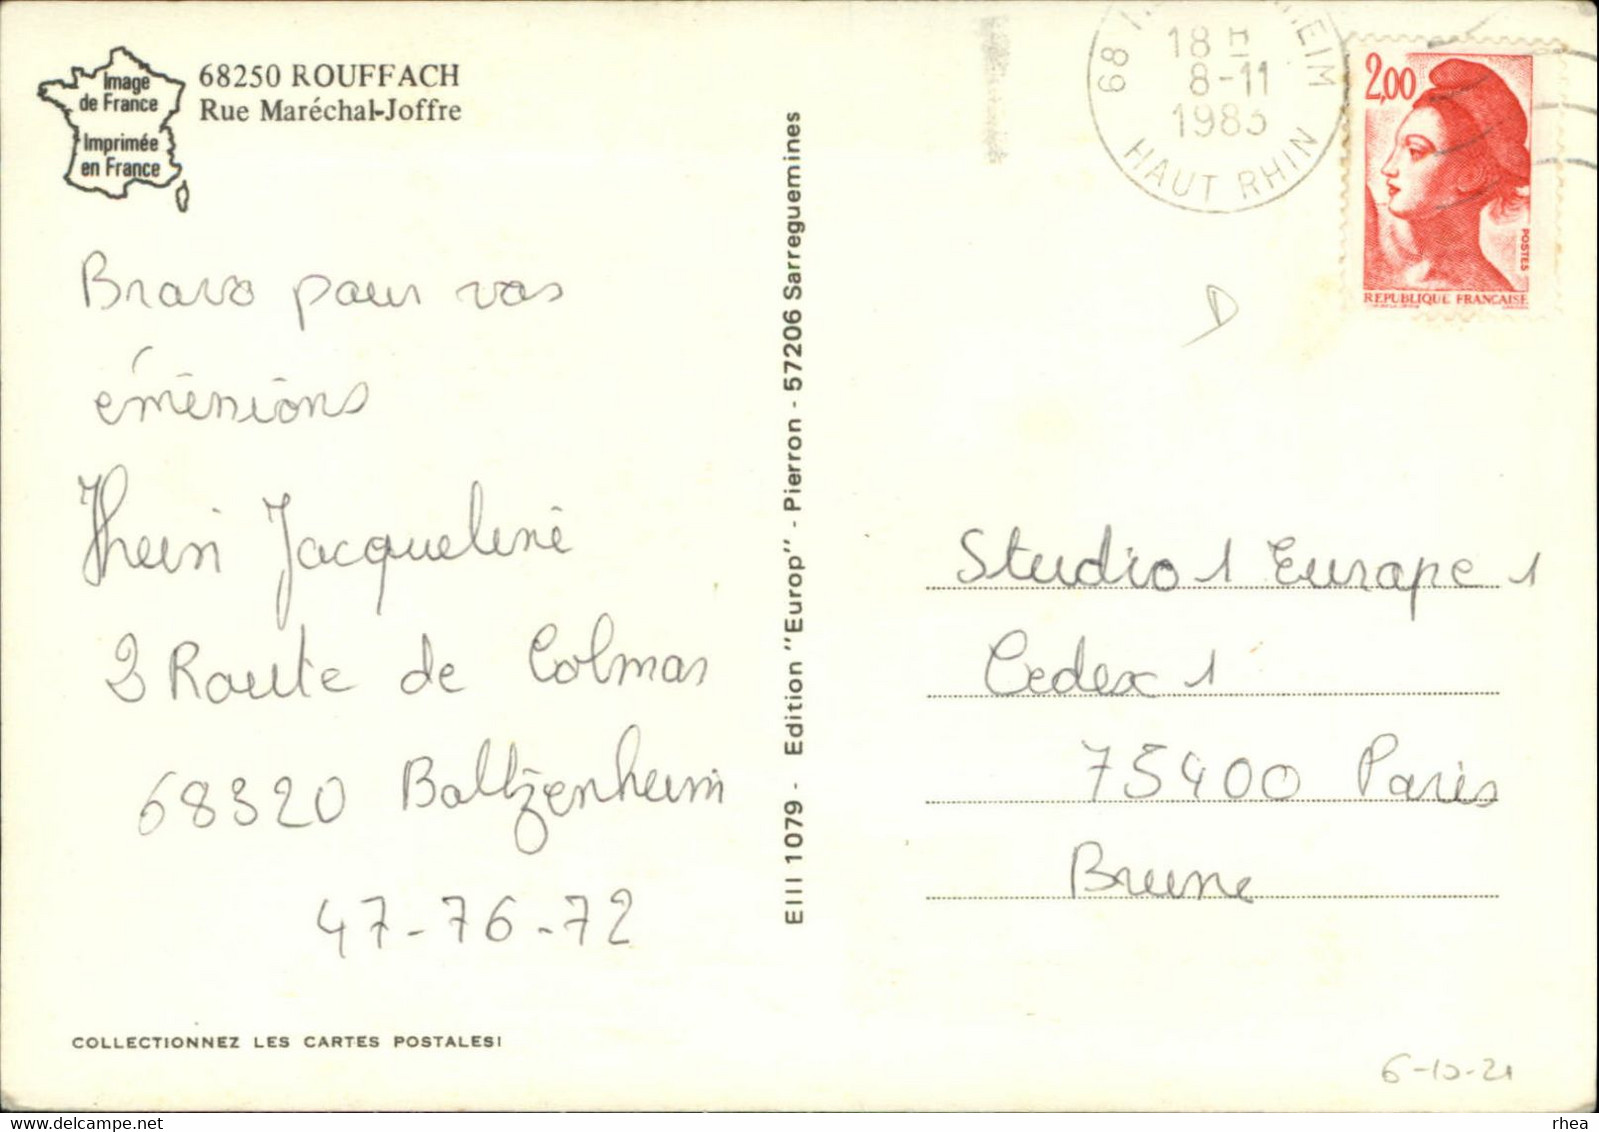 Image
de France
Imprimée
en France
68250 ROUFFACH
Rue Maréchal-Joffre
Bravo pour vos
émissions
Jacqueline
2 Route de Colmar
68320 Baltzenheim
47-76-72
COLLECTIONNEZ LES CARTES POSTALES!
EIII 1079 - Edition "Europ" - Pierron - 57206 Sarreguemines
68
HEIM
18 H
8-11
1983
HAUT RHIN
2,00
POSTES
REPUBLIQUE FRANCAISE
Studio 1 Europe 1
Cedex 1
75400 Paris
Brune
6-10-21
delcampe.net
rhea